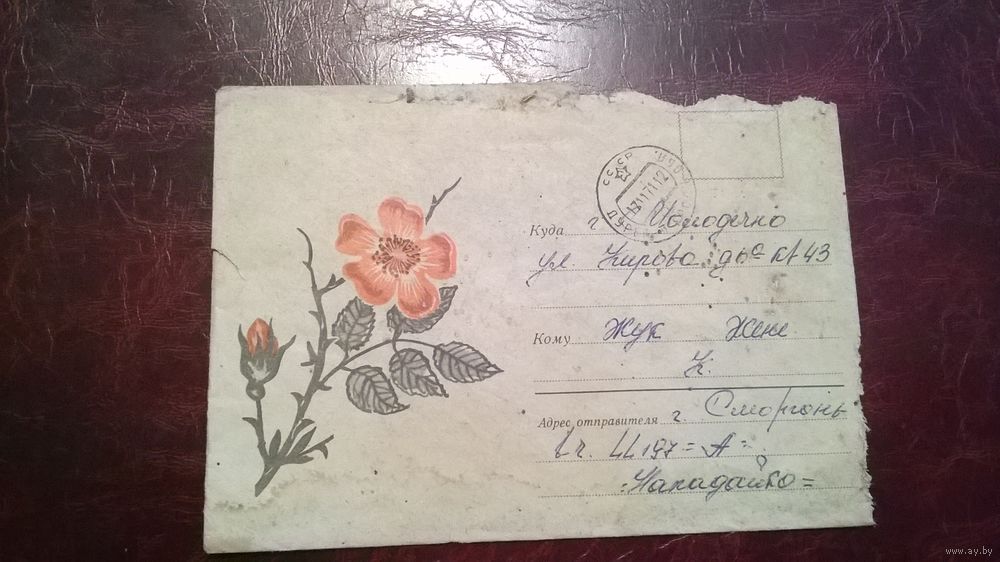 СССР
Куда г Молодечно
ул. Кирова д 6ᵃ кв 43
Кому Жук Жене
К.
Адрес отправителя г Сморгонь
в/ч. 44197 = А =
www.ay.by